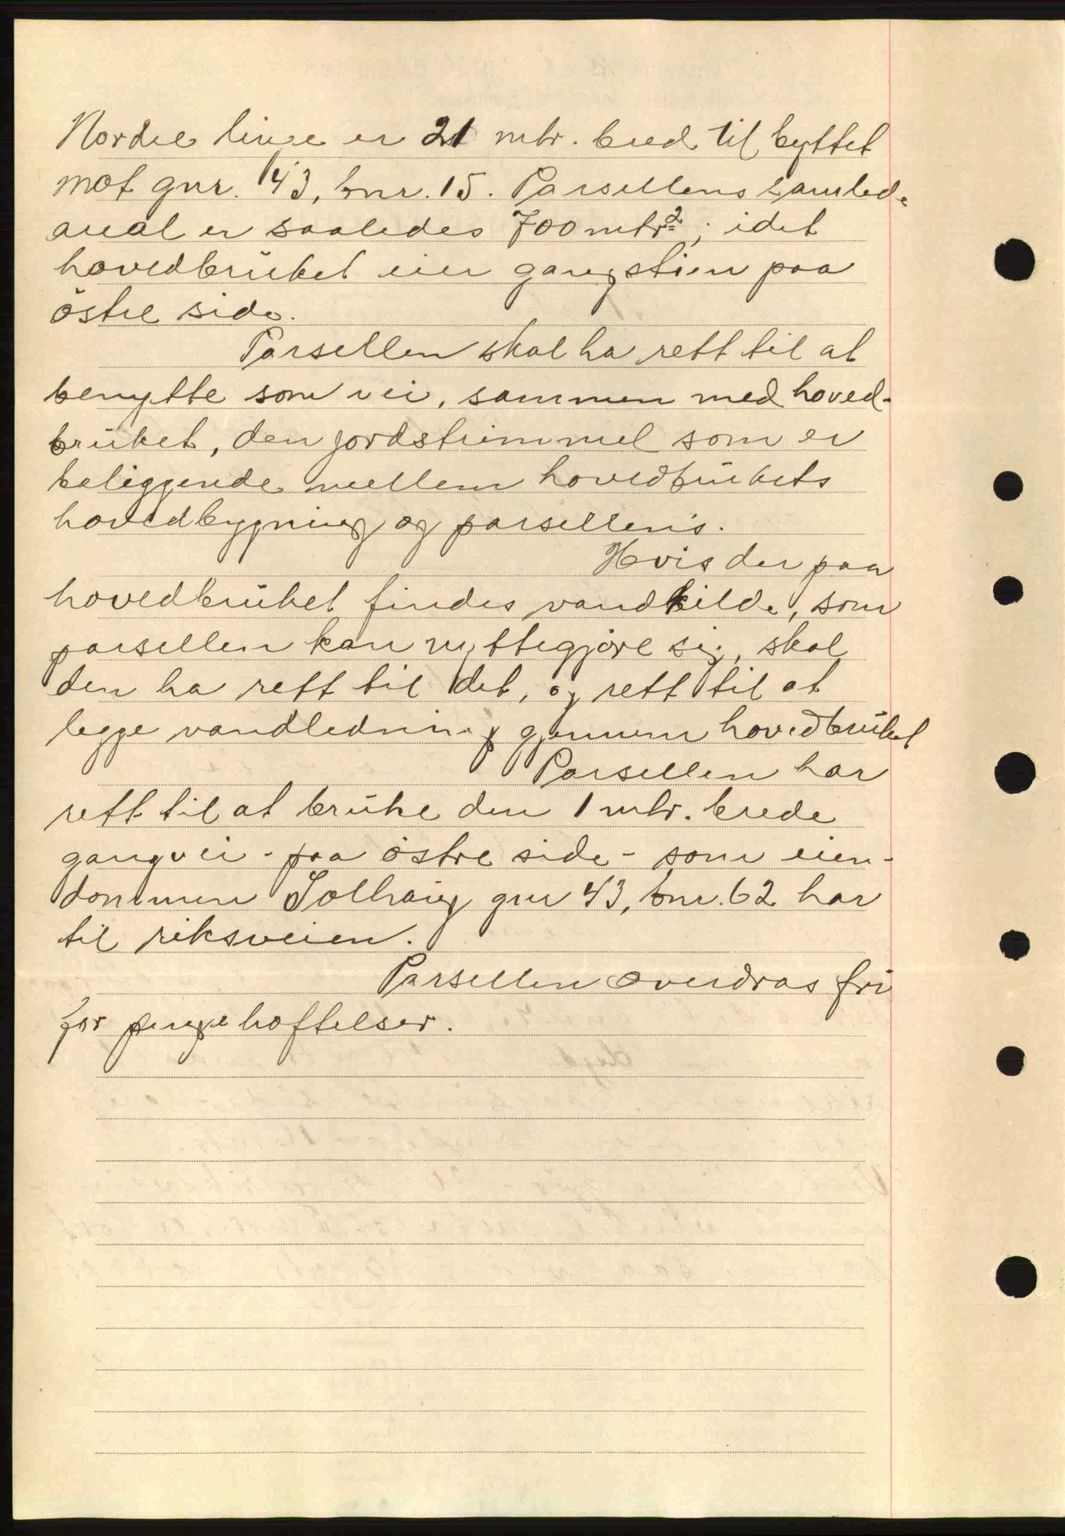 Nordre linje er 21 mtr. bred til byttet
mot gnr. 43, bnr. 15. Parsellens samlede
areal er saaledes 700 mtr²; idet
hovedbruket eier gangstien paa
östre side.
Parsellen skal ha rett til at
benytte som vei, sammen med hoved-
bruket, den jordstrimmel som er
beliggende mellem hovedbrukets
hovedbygning og parsellens.
Hvis der paa
hovedbruket findes vandkilde, som
parsellen kan nyttegjöre sig, skal
den ha rett til det, og rett til at
legge vandledning gjennem hovedbruket
Parsellen har
rett til at bruke den 1 mtr. brede
gangvei - paa östre side - som eien-
dommen Solhaug gnr 43, bnr. 62 har
til riksveien.
Parsellen overdras fri
for pengeheftelser.